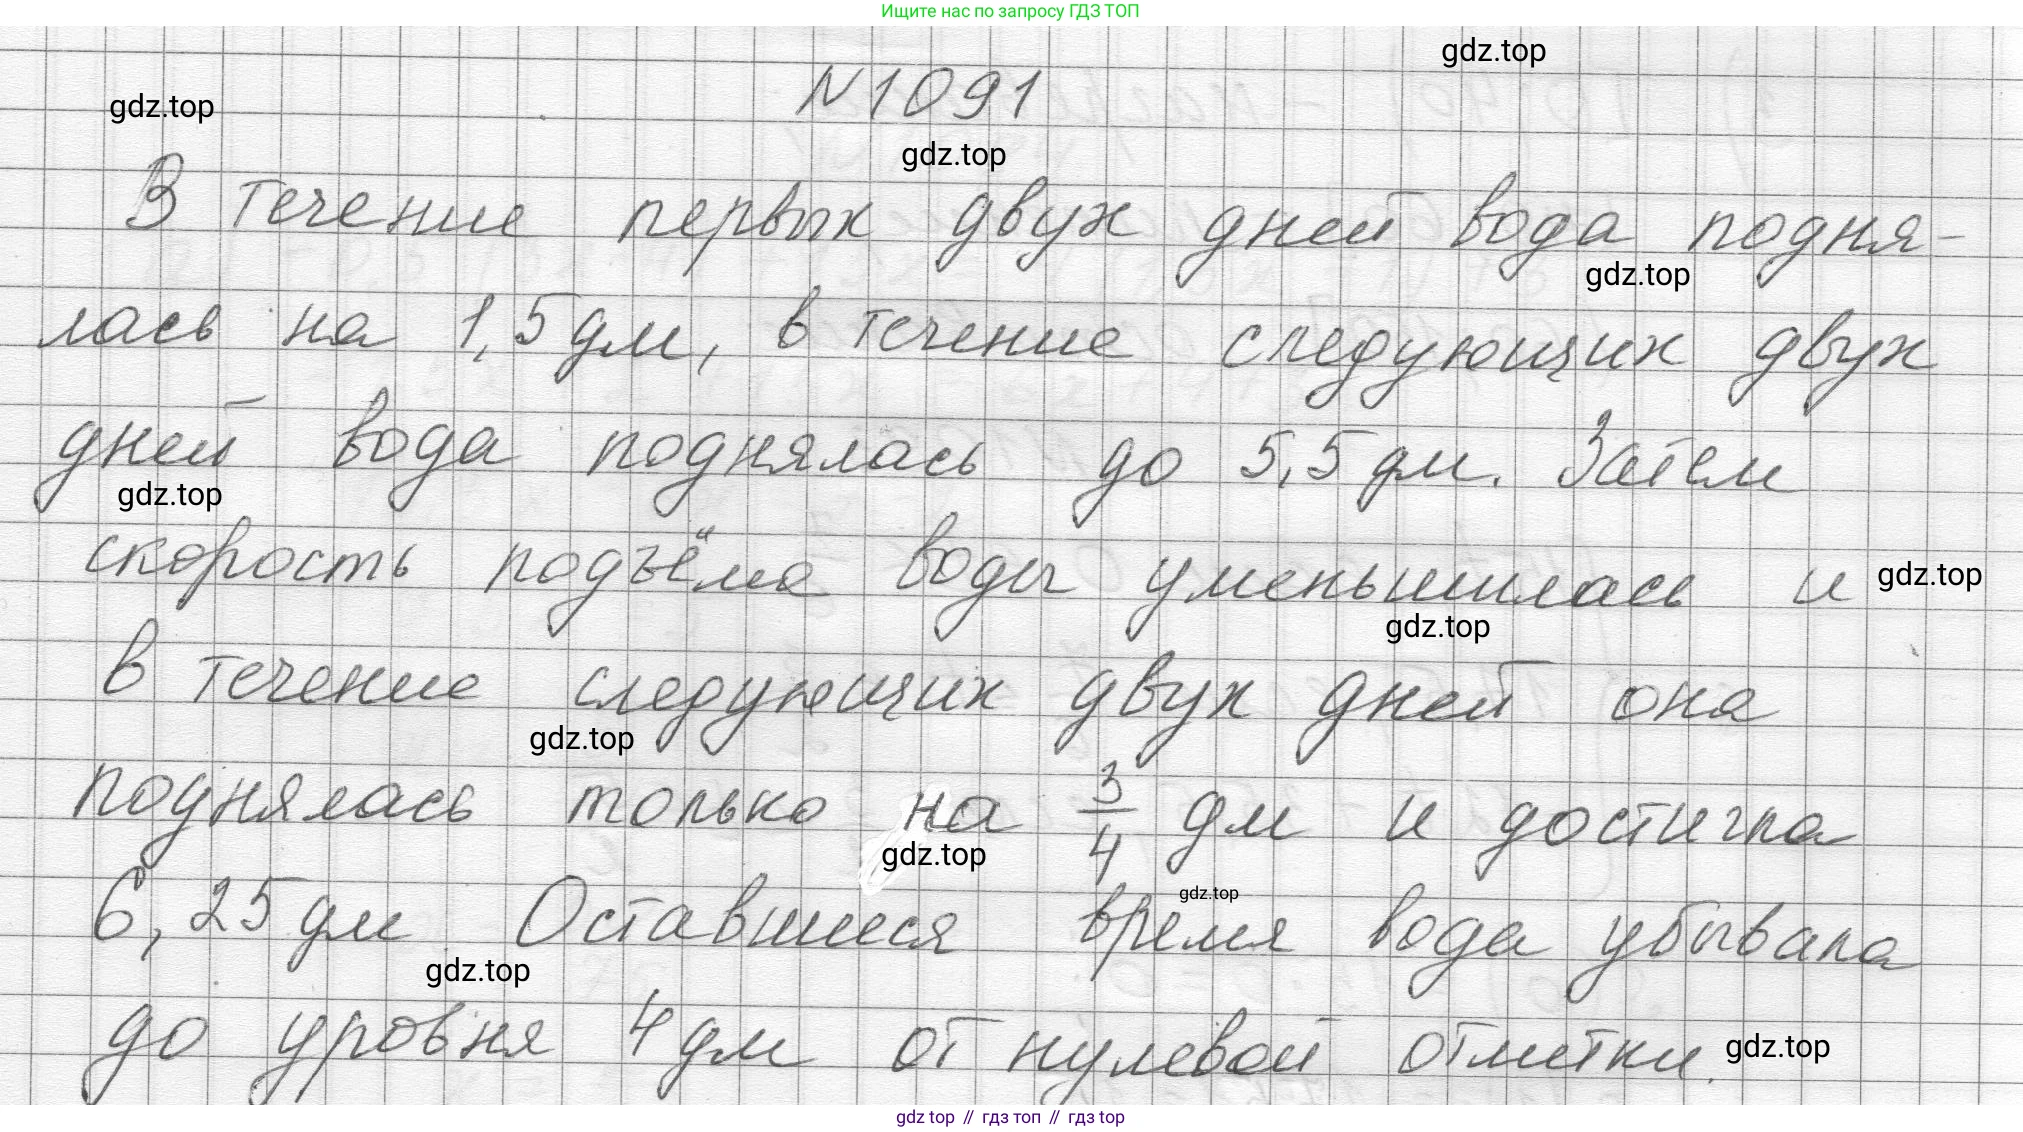 Ищите нас по запросу ГДЗ ТОП
gdz.top
N1091
gdz.top
gdz.top
В течение первых двух дней вода подня-
gdz.top
лась на 1,5 дм, в течение следующих двух
дней вода поднялась до 5,5 дм. Затем
gdz.top
скорость подъёма воды уменьшилась и
gdz.top
gdz.top
в течение следующих двух дней она
gdz.top
поднялась только на 3/4 дм и достигла
gdz.top
gdz.top
6,25 дм Оставшиеся время вода убывала
gdz.top
до уровня 4 дм от нулевой отметки.
gdz.top
gdz top // гдз топ // гдз top